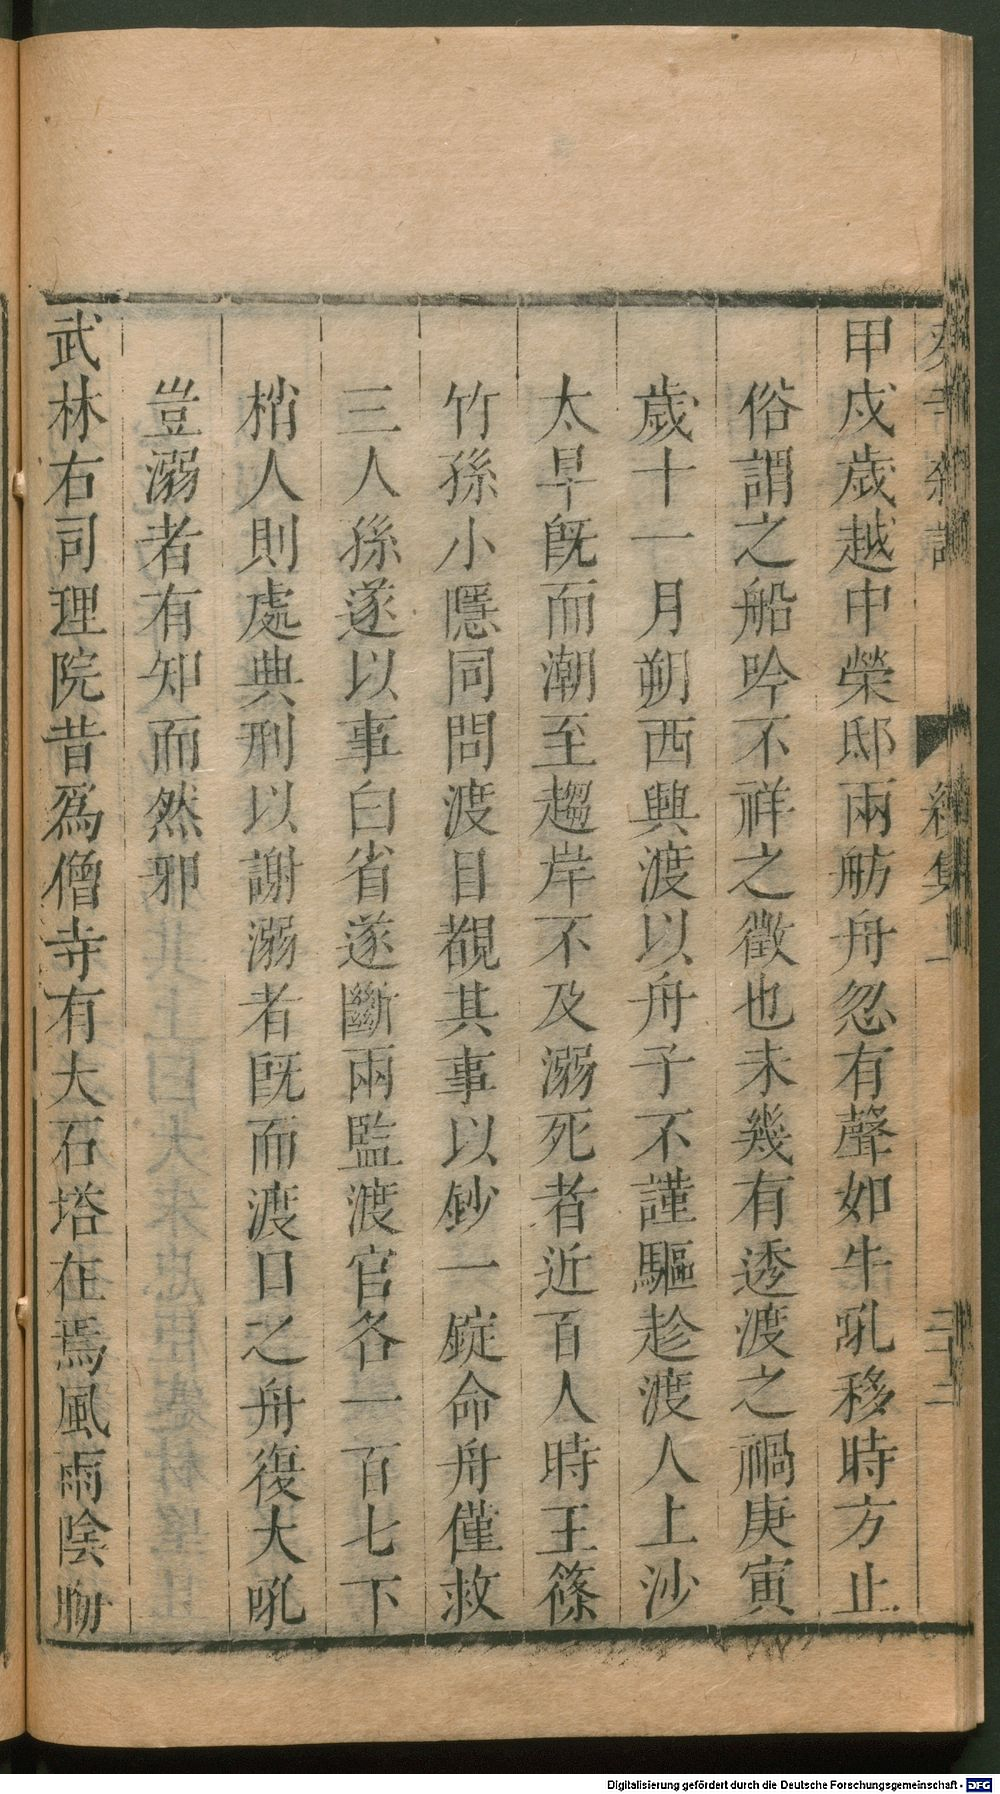 甲戌歲越中榮邸兩舫舟忽有聲如牛吼移時方止
俗謂之船吟不祥之徵也未幾有透渡之禍庚寅
歲十一月朔西興渡以舟子不謹驅趁渡人上沙
太早既而潮至趨岸不及溺死者近百人時王篠
竹孫小隱同問渡目覩其事以鈔一錠命舟僅救
三人孫遂以事白省遂斷兩監渡官各一百七下
梢人則處典刑以謝溺者既而渡口之舟復大吼
豈溺者有知而然邪
武林右司理院昔爲僧寺有大石塔在焉風雨陰
續集 一
二十二
Digitalisierung gefördert durch die Deutsche Forschungsgemeinschaft - DFG